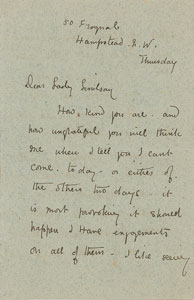 50 Frognal
Hampstead. N. W.
Thursday
Dear Lady
How kind you are and
how ungrateful you will think
me when I tell you I can't
come to-day - or either of
the others two days - it
is most provoking it should
happen I have engagements
on all of them - I like